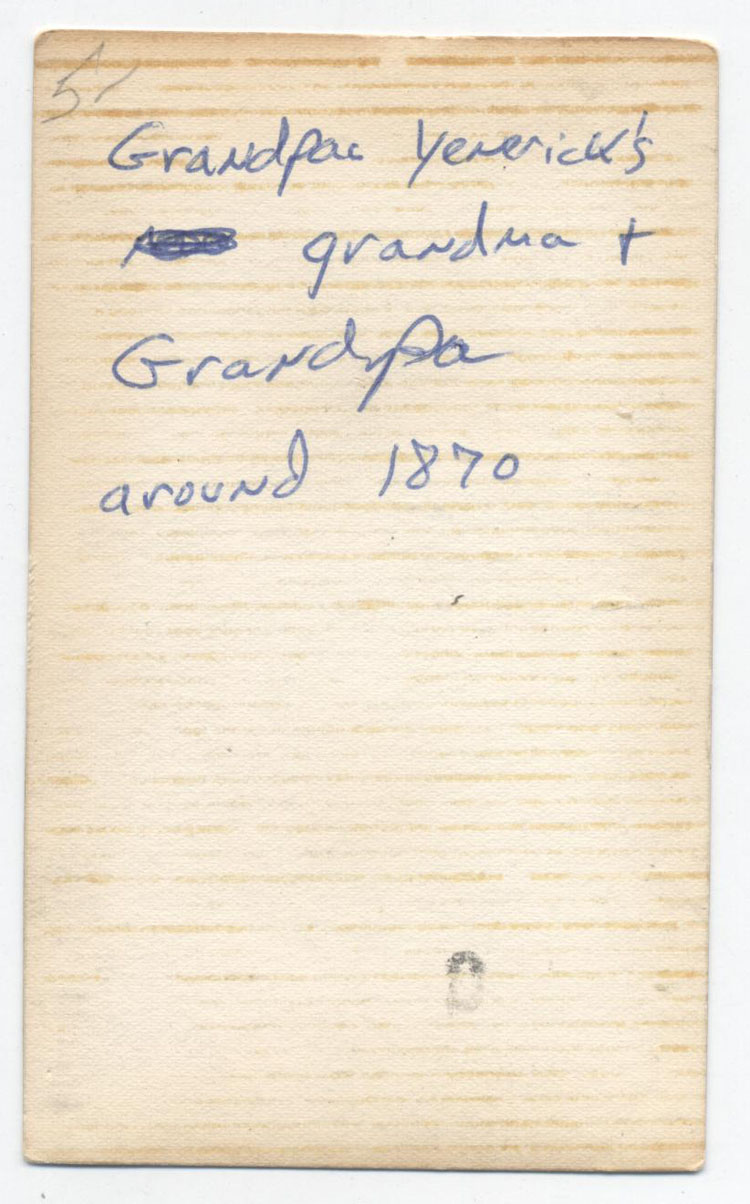 5-
Grandpa Yenerick's
grandma +
Grandpa
around 1870